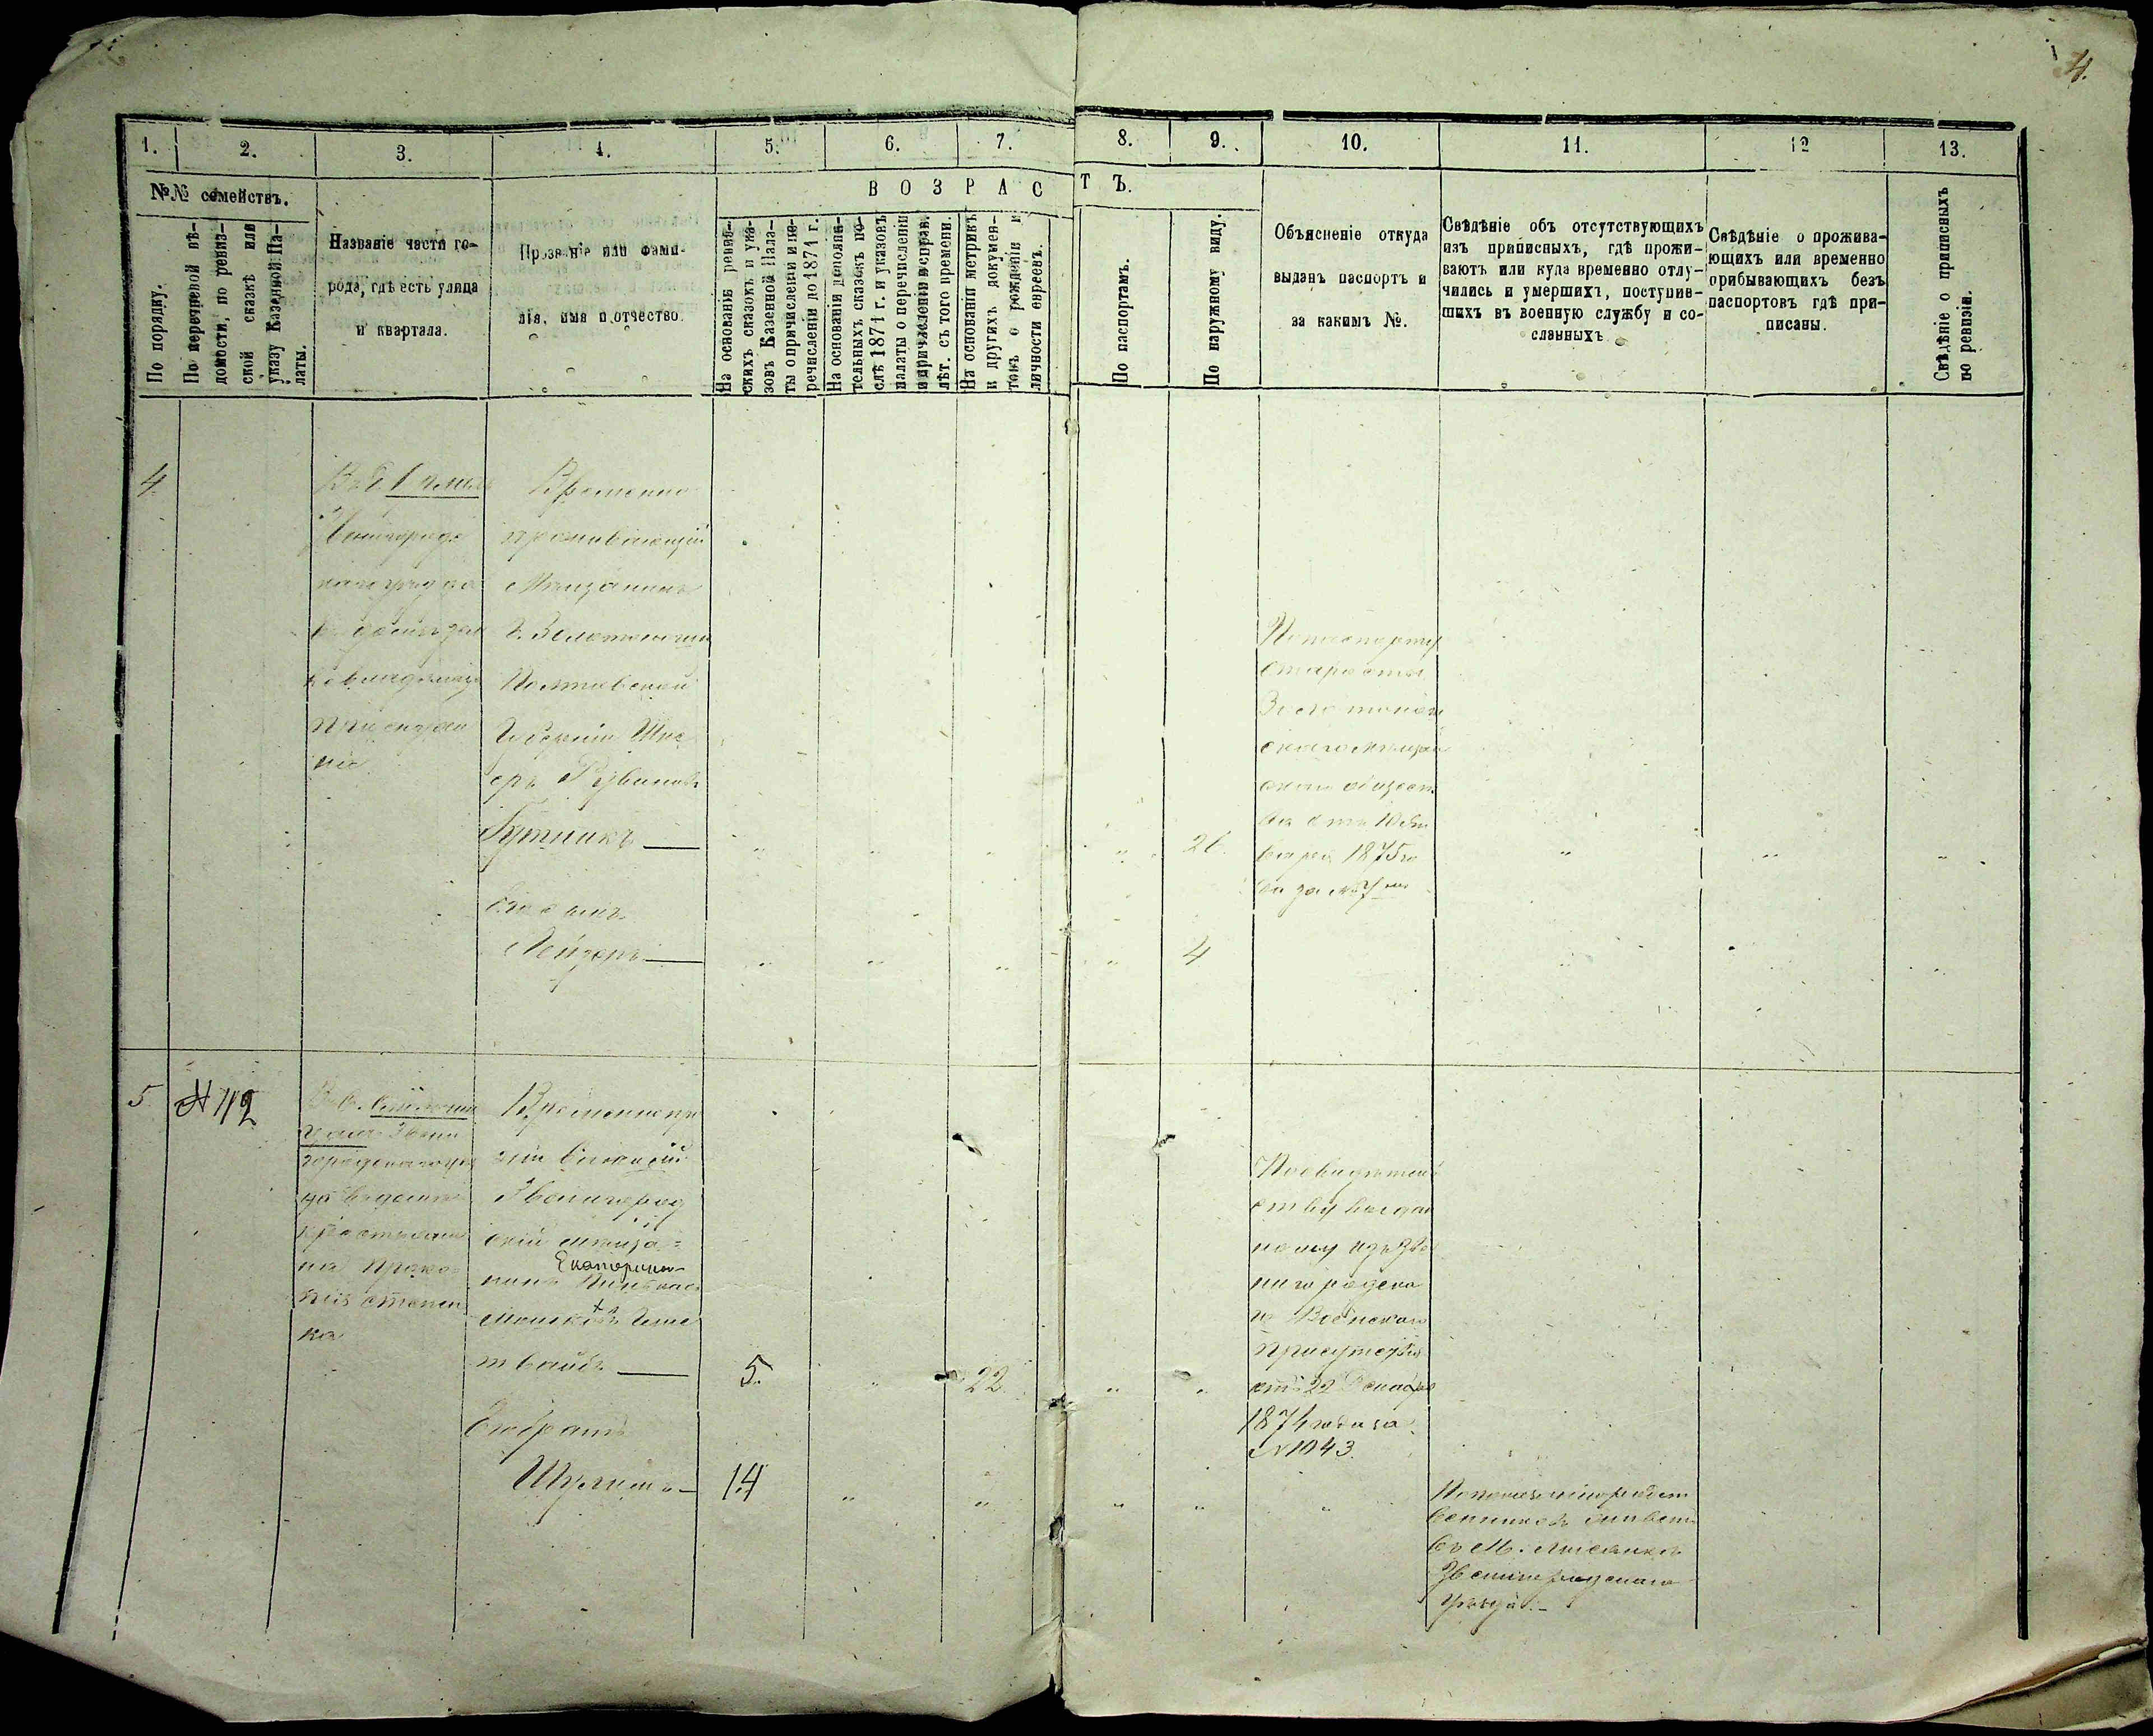 4.
1.
2.
3.
4.
5.
6.
7.
8.
9.
10.
11.
12
13.
№№ семействъ.
По порядку.
По перечневой вѣ-
домости, по ревиз-
ской сказкѣ или
указу Казенной Па-
латы.
Названіе части го-
рода, гдѣ есть улица
и квартала.
Прозваніе или фами-
лія, имя и отчество.
ВОЗРАСТЪ.
На основаніи ревиз-
скихъ сказокъ и ука-
зовъ Казенной Пала-
ты о причисленіи и пе-
речисленіи до 1871 г.
На основаніи дополни-
тельныхъ сказокъ по-
слѣ 1871 г. и указовъ
палаты о перечисленіи
и причисленіи и справ.
лѣт. съ того времени.
На основаніи метрикъ
и другихъ докумен-
товъ о рожденіи и
личности евреевъ.
По паспортамъ.
По наружному виду.
Объясненіе откуда
выданъ паспортъ и
за какимъ №.
Свѣдѣніе объ отсутствующихъ
изъ приписныхъ, гдѣ прожи-
ваютъ или куда временно отлу-
чились и умершихъ, поступив-
шихъ въ военную службу и со-
сланныхъ
Свѣдѣніе о прожива-
ющихъ или временно
прибывающихъ безъ
паспортовъ гдѣ при-
писаны.
Свѣдѣніе о приписныхъ
по ревизіи.
4
Звенигород
скаго уѣзда
Временно
проживающій
Мѣщанинъ
г. Золотоноши
Полтавской
Губерніи Шле
еръ Рувиновъ
Гутникъ
26
Его сынъ
Лейзеръ
4
По паспорту
старосты
Золотонош
скаго мѣщан
скаго общест
ва отъ 10 Ян
варя 1875 го
да за №
5
№ 112
Звени
городскаго уѣз
да въ домѣ
крестьяни
на Проко
пія Степен
ка
Временно про
живающій
Звенигород
скій мѣща=
Екатерино
нинъ Пинхасъ
Мошковъ
5.
22
По свидѣтель
ству выдан
ному изъ Зве
нигородска
го Воинскаго
Присутствія
отъ 22 Декабря
1874 года за
№ 1043.
Его братъ
Шулимъ
14
живетъ
въ М. Лисянкѣ
Звенигородскаго
уѣзда.